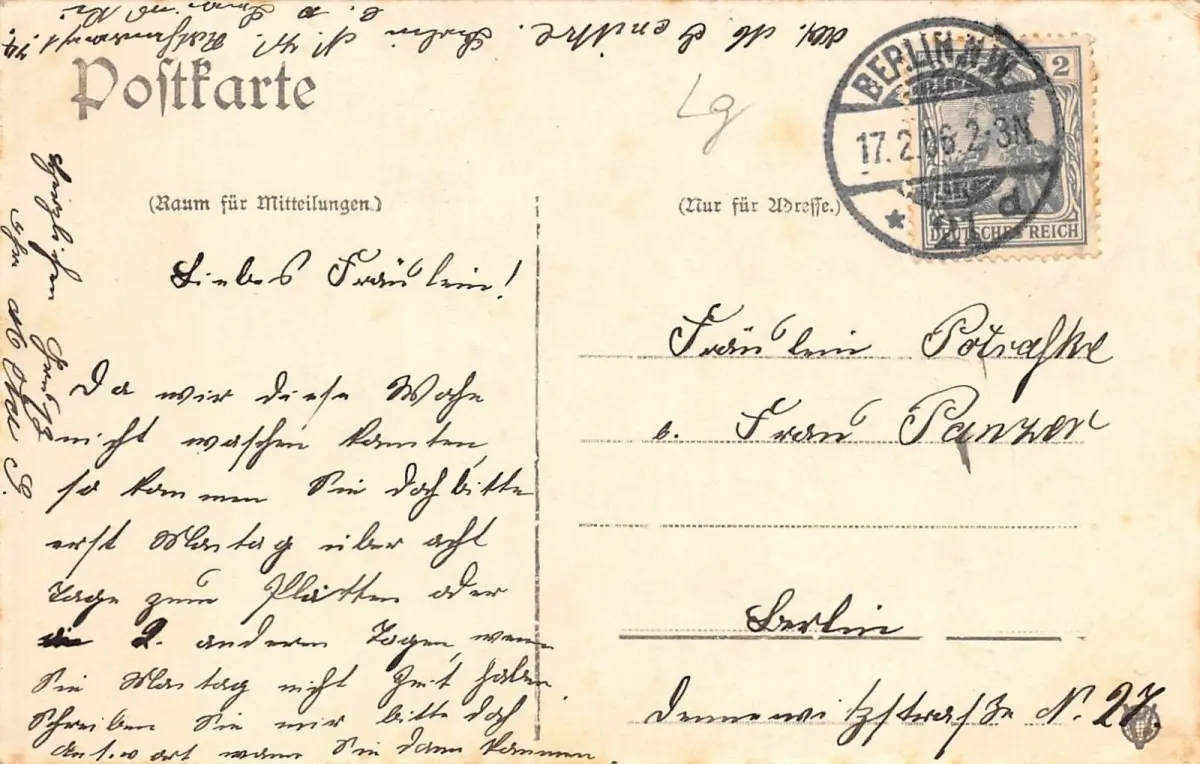 Postkarte
(Raum für Mitteilungen.)
(Nur für Adresse.)
BERLIN N.W.
17.2.06.2-3N.
* 21 d
2 2
DEUTSCHES REICH
Lg
Liebes Fräulein!
Da wir diese Woche
nicht waschen konnten,
so kommen Sie doch bitte
erst Montag über acht
Tage zum Plätten oder
2. anderen Tagen, wenn
Sie Montag nicht Zeit haben.
Schreiben Sie mir bitte doch
Antwort wann Sie dann kommen
Herzlichen Gruß
Berlin
Fräulein Potratzke
b. Frau Panzer
Berlin
Dennewitzstraße N. 27.